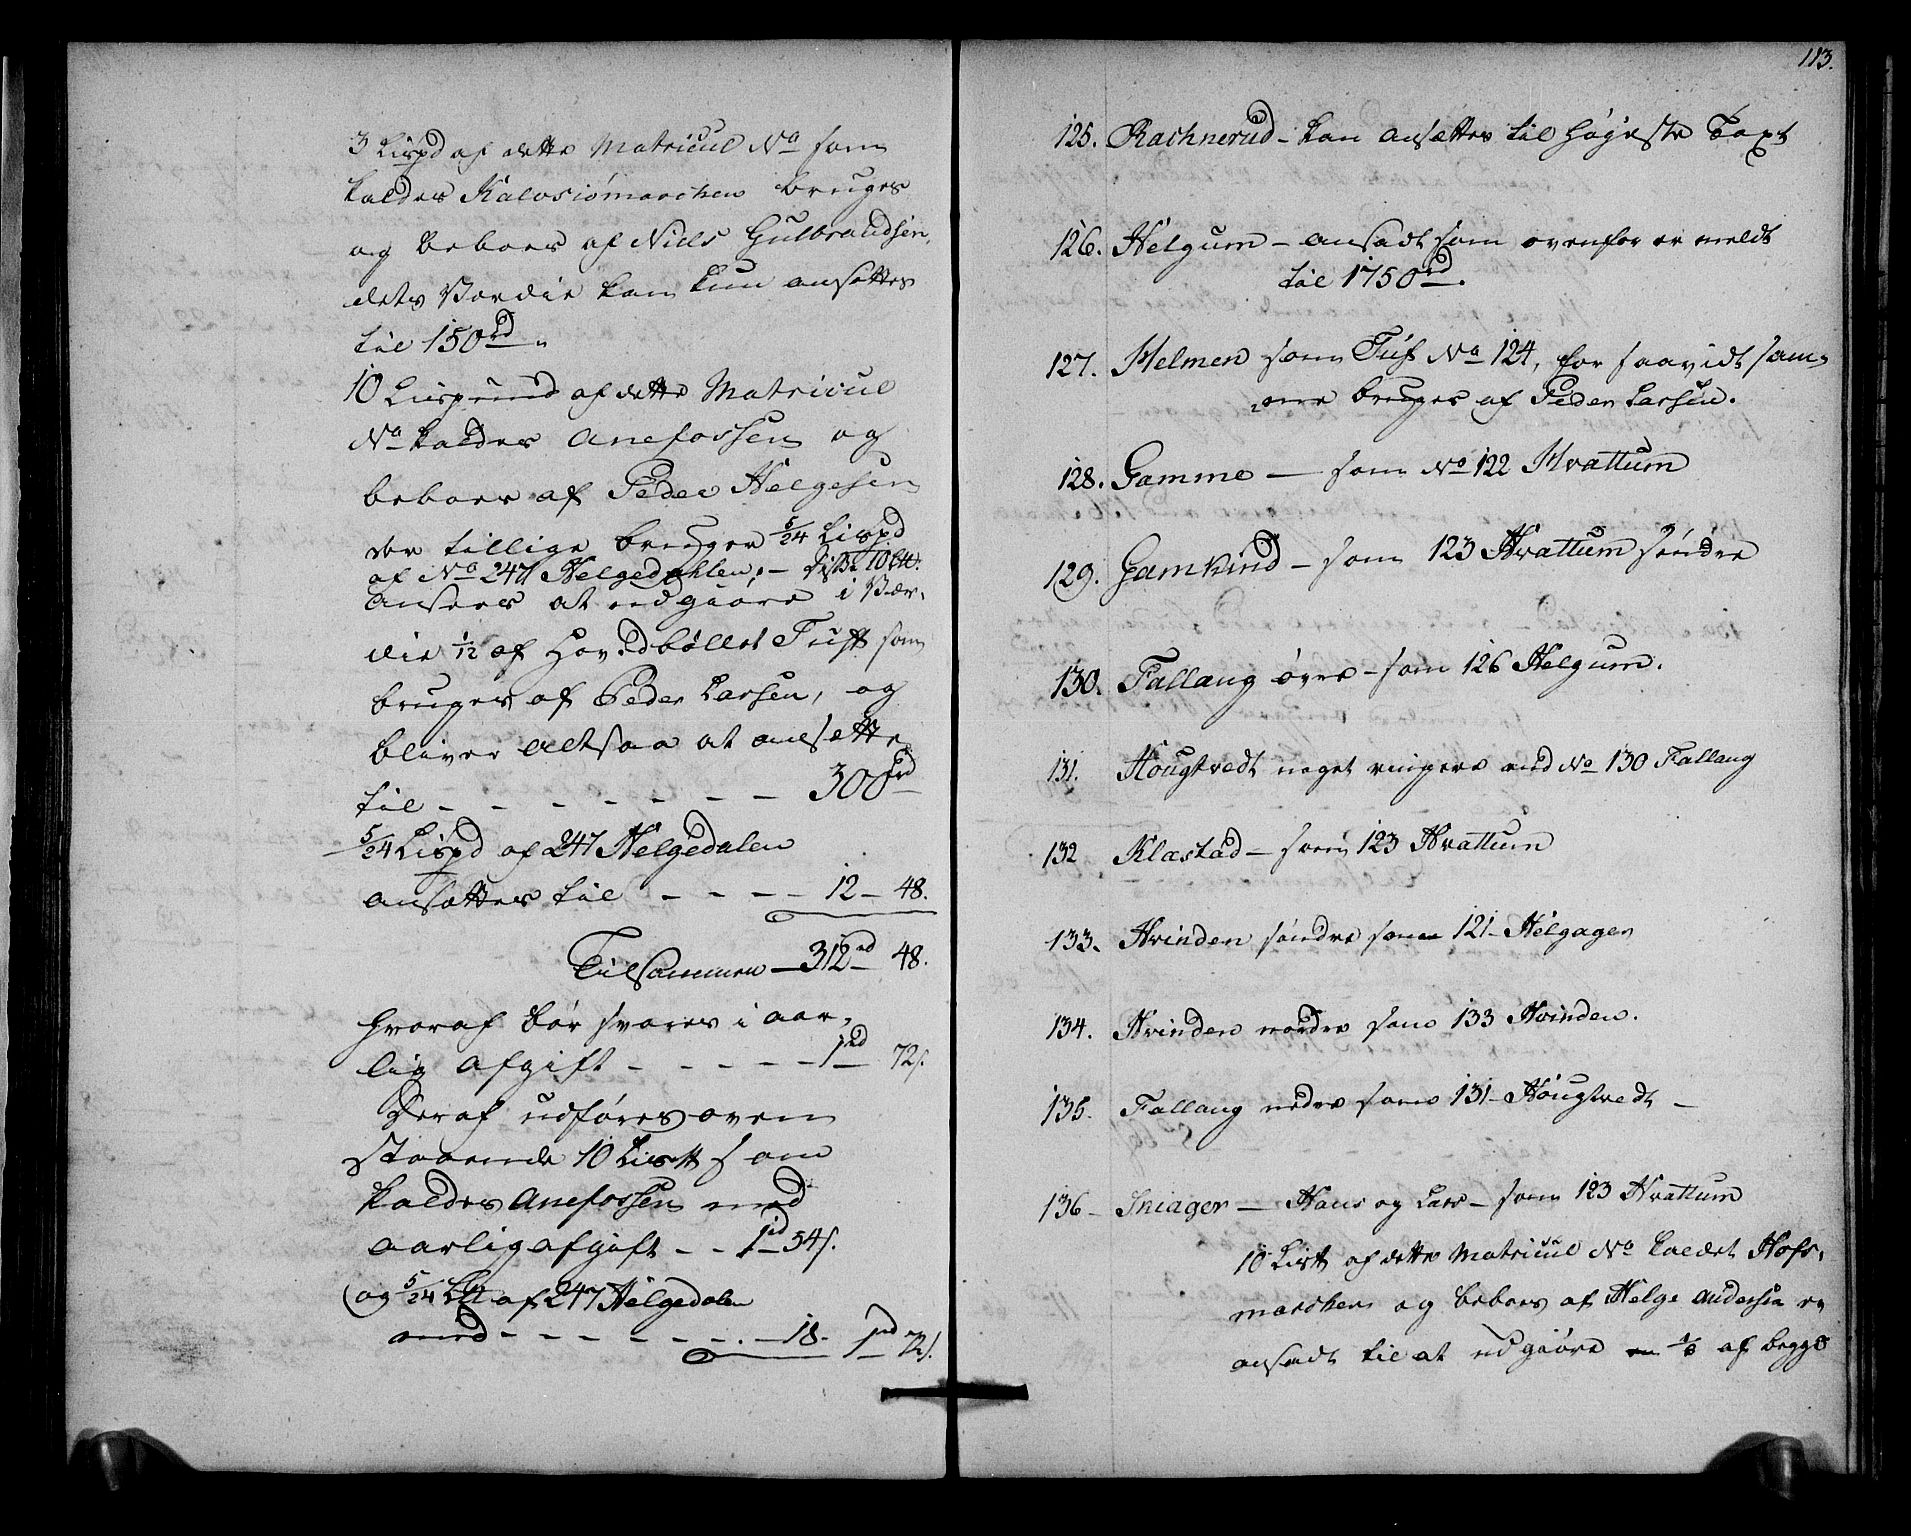 3 Lispd af dette Matricul No som
kaldes Kalvsiömarchen bruges
og beboes af Niels Gulbrandsen,
dets Værdie kan kun ansettes
til 150rd.
10 Lispund af dette Matricul
No kaldes Anefossen og
beboes af Peder Helgesen
der tillige bruger 5/24 Lispd
af No 247 Helgedahlen, –
ansees at udgiöre i Vær-
die 1/12 af Hovedböllet Tuft som
bruges af Peder Larsen, og
bliver altsaa at ansætte
til – – – – – – – 300rd
5/24 Lispd af 247 Helgedalen
ansættes til – – – – 12 – 48.
Tilsammen – 312rd 48.
hvoraf bör svares i aar-
lig afgift – – – – – 1rd 72s.
Deraf udföres oven
staaende 10 Lis℔ som
kaldes Anefossen med
aarlig afgift – – 1rd 54s.
og 5/24 L℔ af 247 Helgedalen
med – – – – – – – 18. 1rd 72s.
113.
125. Rachnerud – kan ansættes til höjeste Taxt
126. Helgum – ansadt som ovenfor er meldt
til 1750rd.
127. Melmen som Tuft No 124, for saavidt sam-
me bruges af Peder Larsen.
128. Gamme – som No 122 Hvattum
129. Gamkind – som 123 Hvattum söndre
130. Fallang övre – som 126 Helgum.
131. Hougtvedt noget ringere end No 130 Fallang
132 Klæstad – som 123 Hvattum
133. Hvinden söndre som 121 – Helgager
134. Hvinden nordre som 133 Hvinden.
135. Fallang nedre som 131 – Hougtvedt –
136 – Sniager – Hans og Lars – som 123 Hvattum
10 Lis℔ af dette Matricul No kaldet Hofs-
marchen og beboes af Helge Andersen er
ansadt til at udgiöre en 1/8 af begge